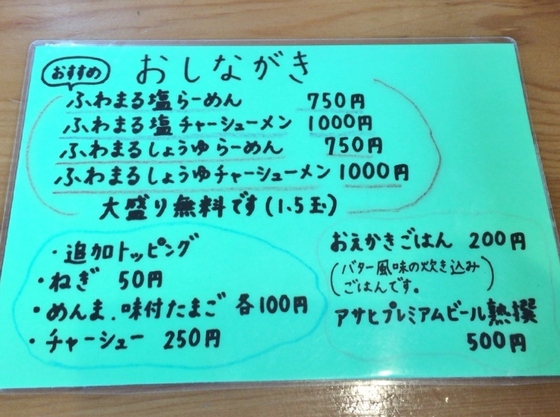 おすすめ おしながき
ふわまる塩らーめん 750円
ふわまる塩チャーシューメン 1000円
ふわまるしょうゆらーめん 750円
ふわまるしょうゆチャーシューメン 1000円
大盛り無料です(1.5玉)
・追加トッピング
・ねぎ 50円
・めんま.味付たまご 各100円
・チャーシュー 250円
おえかきごはん 200円
(バター風味の炊き込み
ごはんです。)
アサヒプレミアムビール熟撰
500円